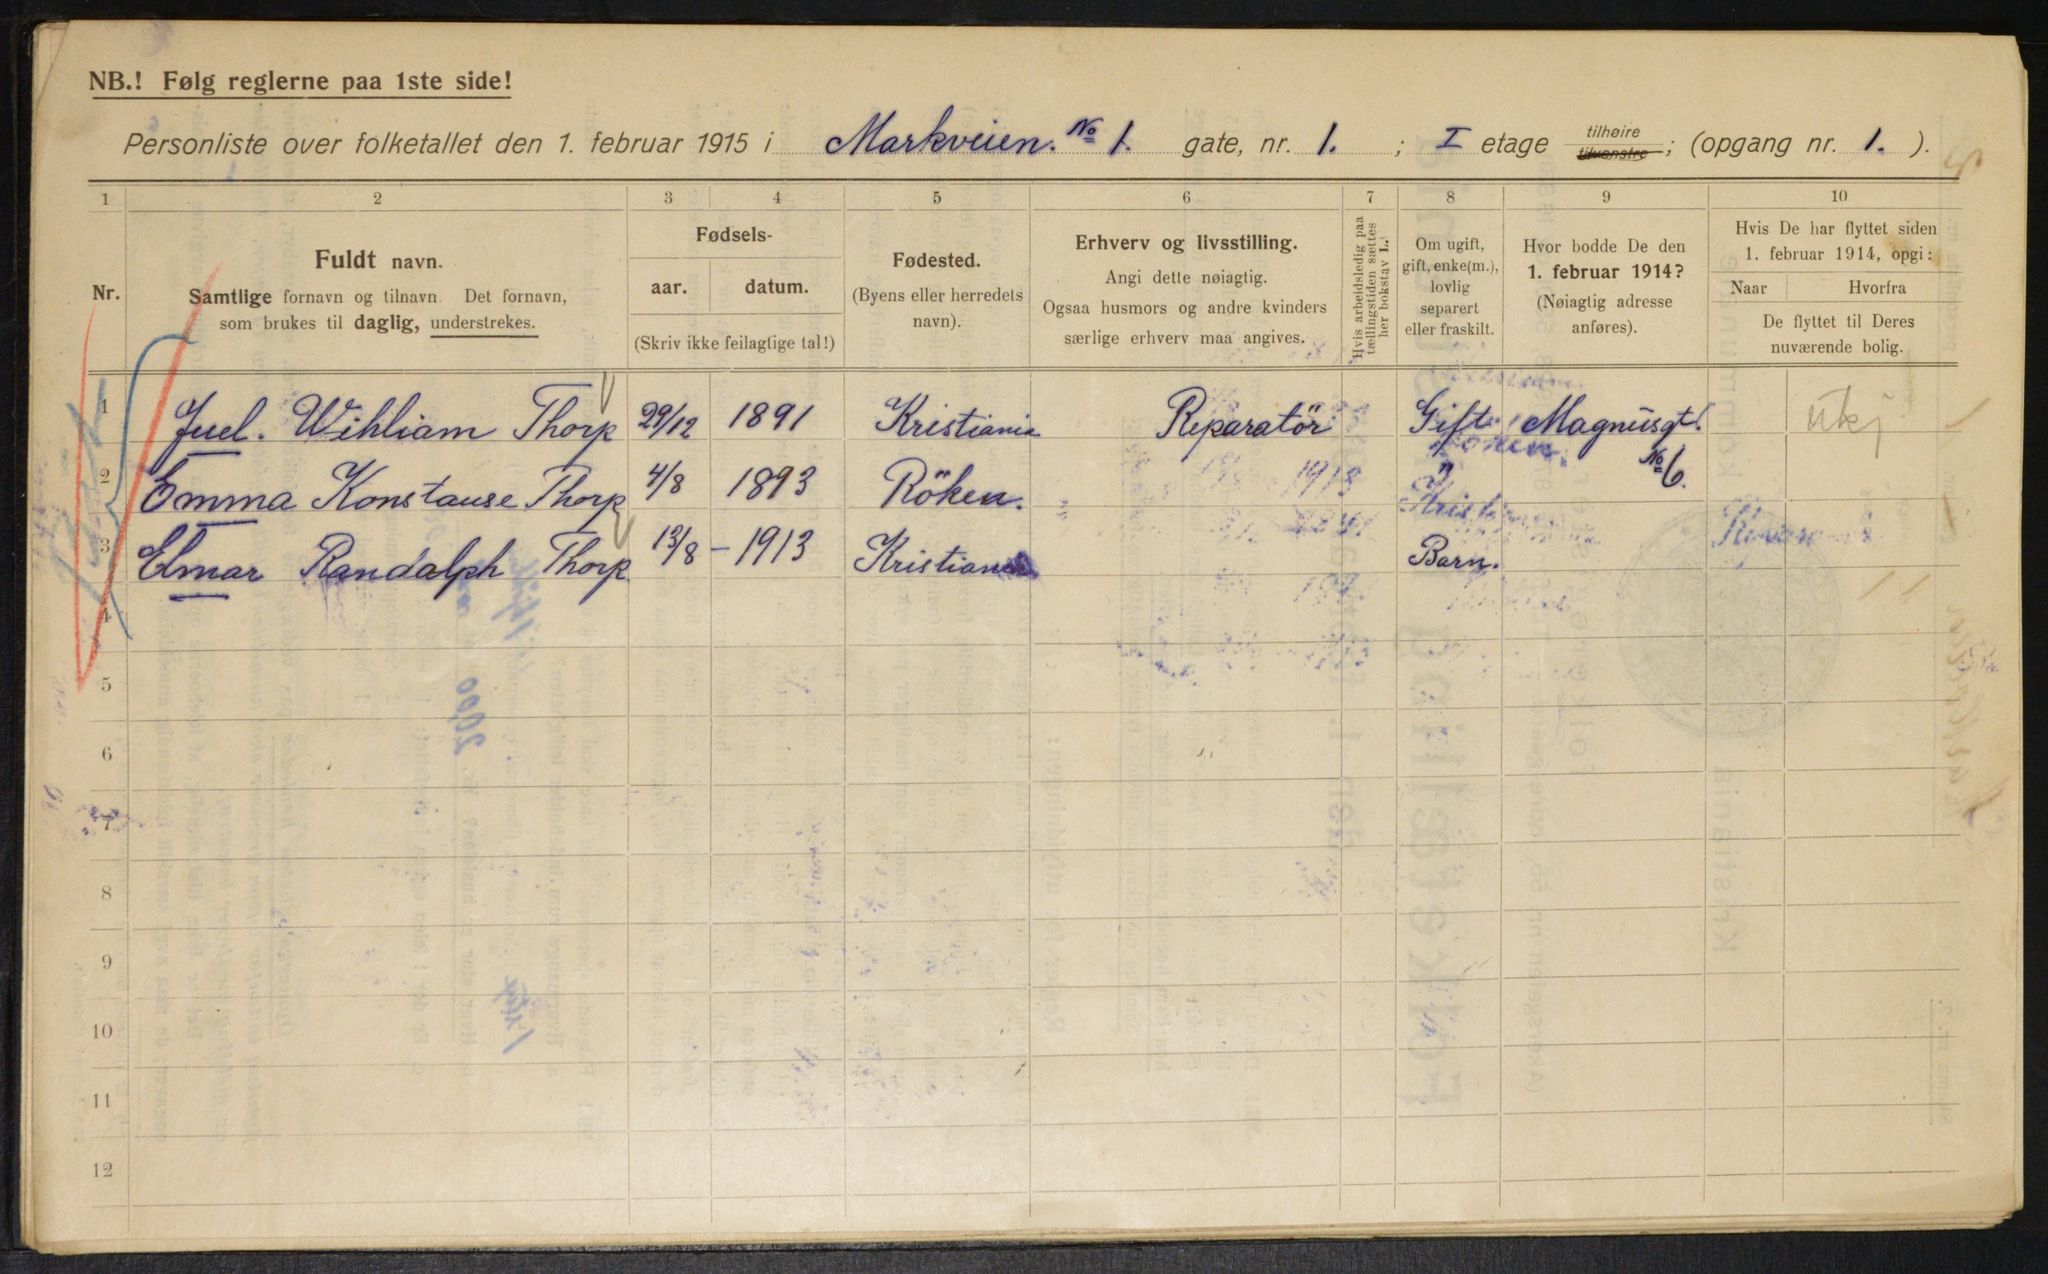 NB.! Følg reglerne paa 1ste side!
Personliste over folketallet den 1. februar 1915 i Markveien. No 1. gate, nr. 1. ; I etage tilhøire tilvenstre ; (opgang nr. 1. ).
1 2 3 4 5 6 7 8 9 10
Nr.
Fuldt navn.
Samtlige fornavn og tilnavn. Det fornavn,
som brukes til daglig, understrekes.
Fødsels-
aar. datum.
(Skriv ikke feilagtige tal!)
Fødested.
(Byens eller herredets
navn).
Erhverv og livsstilling.
Angi dette nøiagtig.
Ogsaa husmors og andre kvinders
særlige erhverv maa angives.
Hvis arbeidsledig paa
tællingstiden sættes
her bokstav L.
Om ugift,
gift, enke(m.),
lovlig
separert
eller fraskilt.
Hvor bodde De den
1. februar 1914?
(Nøiagtig adresse
anføres).
Hvis De har flyttet siden
1. februar 1914, opgi:
Naar Hvorfra
De flyttet til Deres
nuværende bolig.
1 Juel. Wihliam Thorp 29/12 1891 Kristiania Reparatör Gift. Magnusgt. ukj
2 Emma Konstanse Thorp 4/8 1893 Röken. " " No 6.
3 Elmar Randalph Thorp 13/8 – 1913 Kristiania Barn.
4
5
6
7
8
9
10
11
12